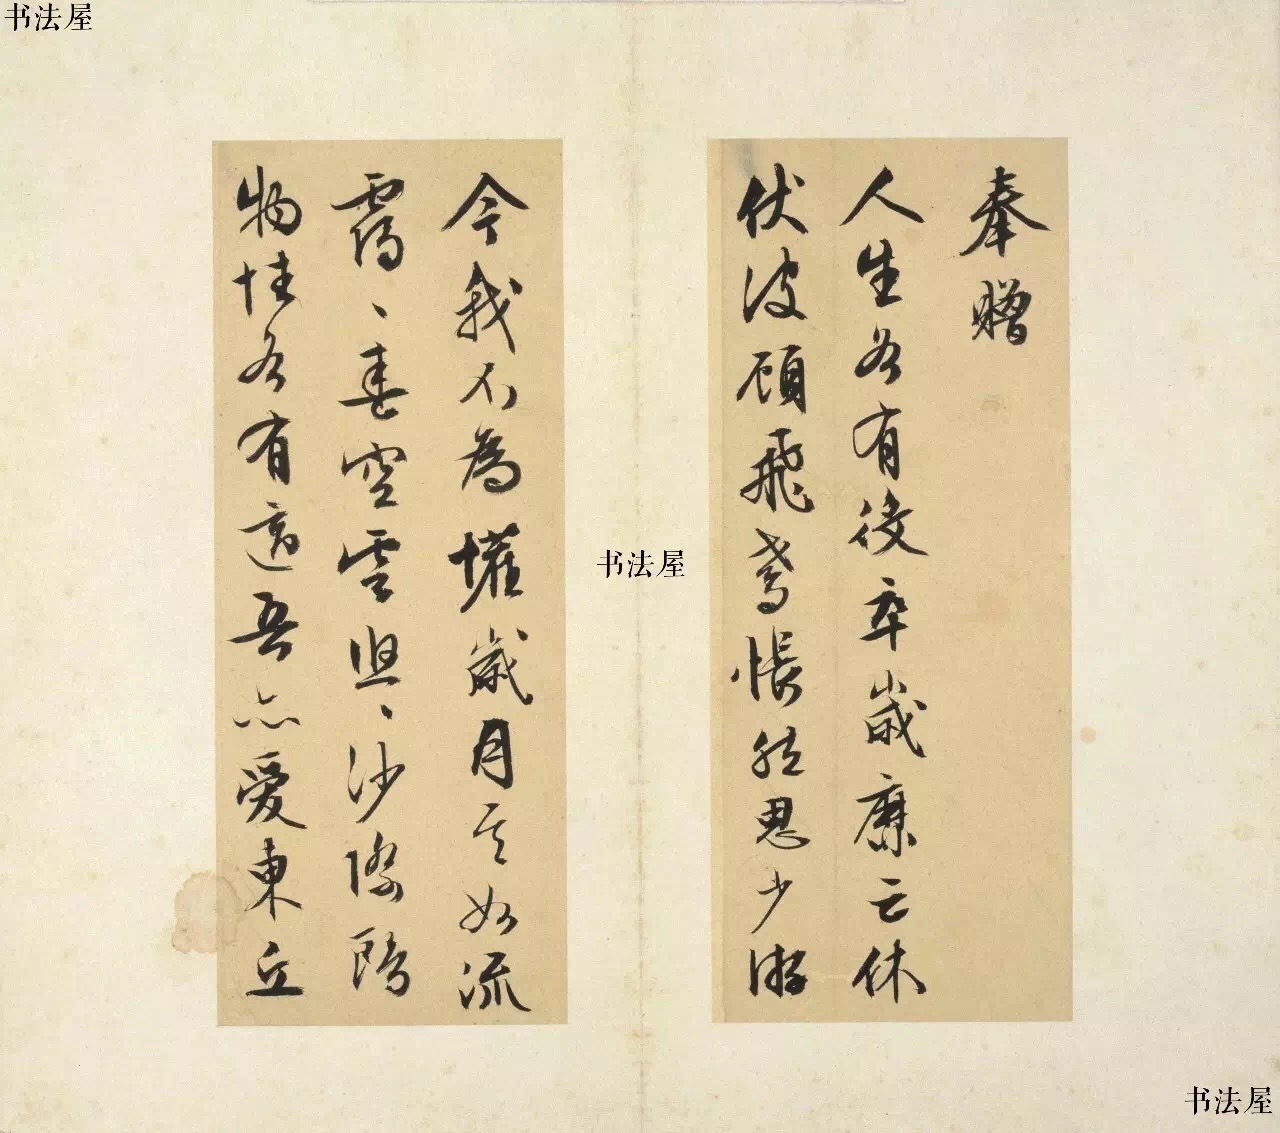 书法屋
奉贈
人生各有役卒歲靡云休
伏波顧飛鳶悵然思少游
书法屋
今我不為懽歲月其如流
靄、春空雲、沙際鷗
物性各有適吾亦愛東丘
书法屋